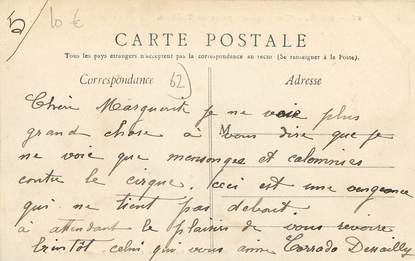 5/ 10 €
CARTE POSTALE
Tous les pays étrangers n'acceptent pas la correspondance au recto (Se renseigner à la Poste).
Correspondance 62 Adresse
Chère Marguerite je ne vois plus
grand chose à vous dire que je
M
ne voie que mensonges et calomnies
contre le cirque. ceci est une vengeance
qui ne tient pas debout.
à attendant le plaisir de vous revoire
bientôt celui qui vous aime Corrado